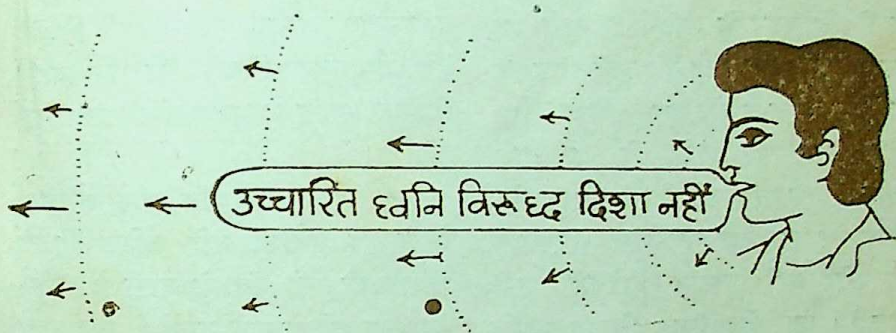 उच्चारित ध्वनि विरूध्द दिशा नहीं